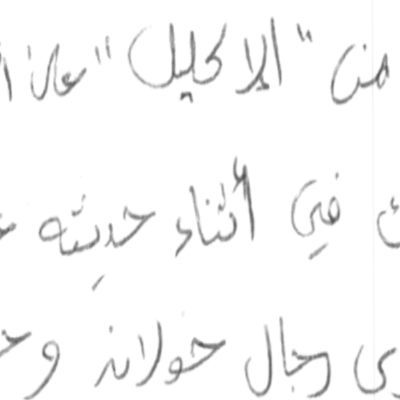 من "الإكليل" عن
في أثناء حديثه
رجال خولان و